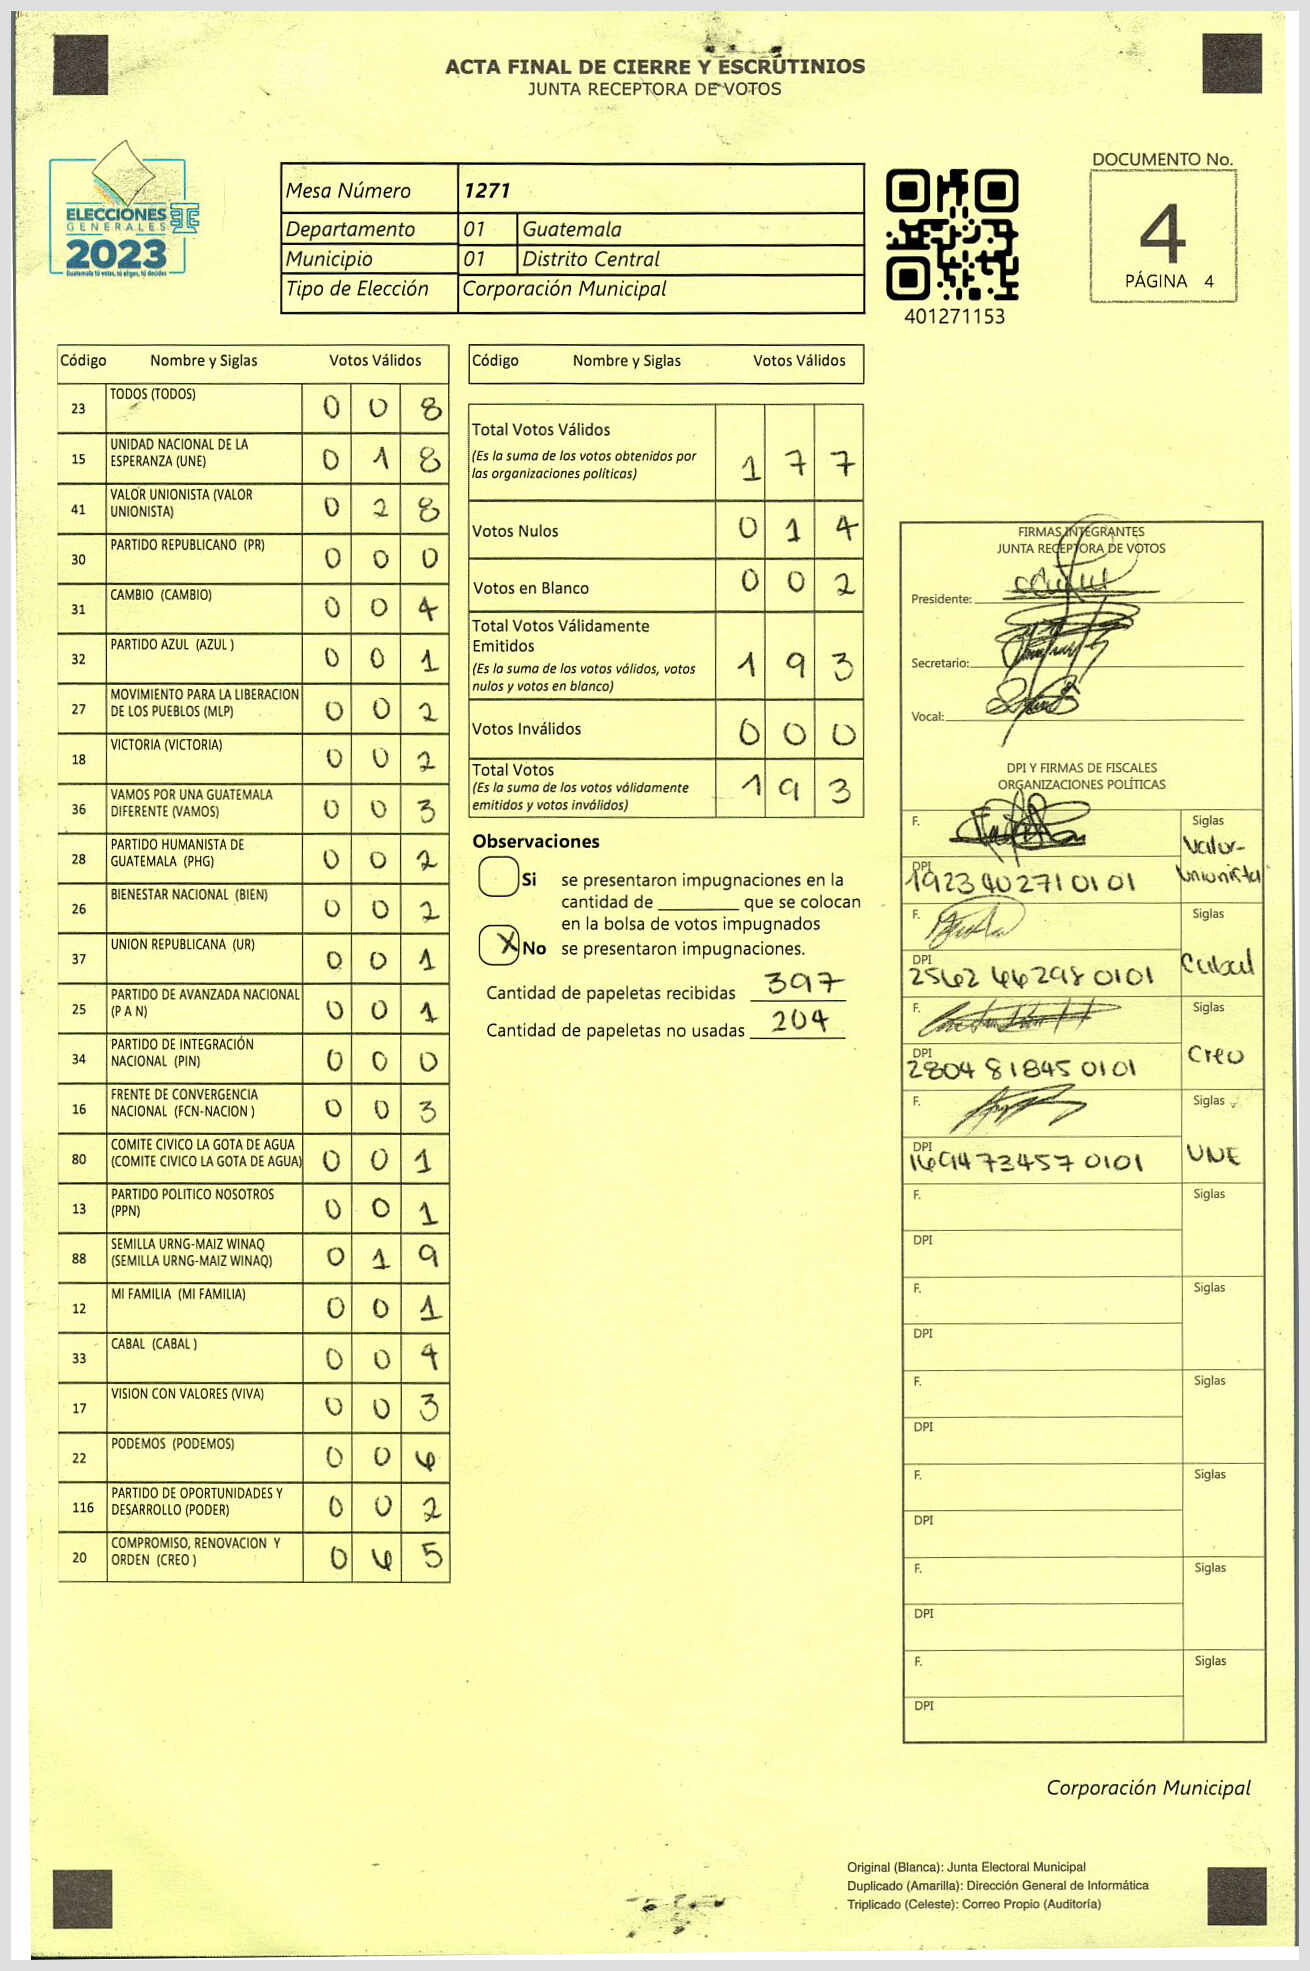 ACTA FINAL DE CIERRE Y ESCRUTINIOS
JUNTA RECEPTORA DE VOTOS
ELECCIONES
GENERALES
2023
Guatemala tú votas, tú eliges, tú decides
Mesa Número 1271
Departamento 01 Guatemala
Municipio 01 Distrito Central
Tipo de Elección Corporación Municipal
401271153
DOCUMENTO No.
4
PÁGINA 4
Código Nombre y Siglas Votos Válidos
23 TODOS (TODOS) 0 0 8
15 UNIDAD NACIONAL DE LA
ESPERANZA (UNE) 0 1 8
41 VALOR UNIONISTA (VALOR
UNIONISTA) 0 2 8
30 PARTIDO REPUBLICANO (PR) 0 0 0
31 CAMBIO (CAMBIO) 0 0 4
32 PARTIDO AZUL (AZUL ) 0 0 1
27 MOVIMIENTO PARA LA LIBERACION
DE LOS PUEBLOS (MLP) 0 0 2
18 VICTORIA (VICTORIA) 0 0 2
36 VAMOS POR UNA GUATEMALA
DIFERENTE (VAMOS) 0 0 3
28 PARTIDO HUMANISTA DE
GUATEMALA (PHG) 0 0 2
26 BIENESTAR NACIONAL (BIEN) 0 0 2
37 UNION REPUBLICANA (UR) 0 0 1
25 PARTIDO DE AVANZADA NACIONAL
(P A N) 0 0 1
34 PARTIDO DE INTEGRACIÓN
NACIONAL (PIN) 0 0 0
16 FRENTE DE CONVERGENCIA
NACIONAL (FCN-NACION ) 0 0 3
80 COMITE CIVICO LA GOTA DE AGUA
(COMITE CIVICO LA GOTA DE AGUA) 0 0 1
13 PARTIDO POLITICO NOSOTROS
(PPN) 0 0 1
88 SEMILLA URNG-MAIZ WINAQ
(SEMILLA URNG-MAIZ WINAQ) 0 1 9
12 MI FAMILIA (MI FAMILIA) 0 0 1
33 CABAL (CABAL ) 0 0 4
17 VISION CON VALORES (VIVA) 0 0 3
22 PODEMOS (PODEMOS) 0 0 6
116 PARTIDO DE OPORTUNIDADES Y
DESARROLLO (PODER) 0 0 2
20 COMPROMISO, RENOVACION Y
ORDEN (CREO ) 0 6 5
Código Nombre y Siglas Votos Válidos
Total Votos Válidos
(Es la suma de los votos obtenidos por
las organizaciones políticas) 1 7 7
Votos Nulos 0 1 4
Votos en Blanco 0 0 2
Total Votos Válidamente
Emitidos
(Es la suma de los votos válidos, votos
nulos y votos en blanco) 1 9 3
Votos Inválidos 0 0 0
Total Votos
(Es la suma de los votos válidamente
emitidos y votos inválidos) 1 9 3
Observaciones
Si se presentaron impugnaciones en la
cantidad de ________ que se colocan
en la bolsa de votos impugnados
X No se presentaron impugnaciones.
Cantidad de papeletas recibidas 397
Cantidad de papeletas no usadas 204
FIRMAS INTEGRANTES
JUNTA RECEPTORA DE VOTOS
Presidente:
Secretario:
Vocal:
DPI Y FIRMAS DE FISCALES
ORGANIZACIONES POLÍTICAS
F. Siglas
Valor-
Unionista
DPI
1923 40271 0101
F. Siglas
Cabal
DPI
2562 66298 0101
F. Siglas
Creo
DPI
2804 81845 0101
F. Siglas
UNE
DPI
1694 73457 0101
F. Siglas
DPI
F. Siglas
DPI
F. Siglas
DPI
F. Siglas
DPI
F. Siglas
DPI
F. Siglas
DPI
Corporación Municipal
Original (Blanca): Junta Electoral Municipal
Duplicado (Amarilla): Dirección General de Informática
Triplicado (Celeste): Correo Propio (Auditoría)